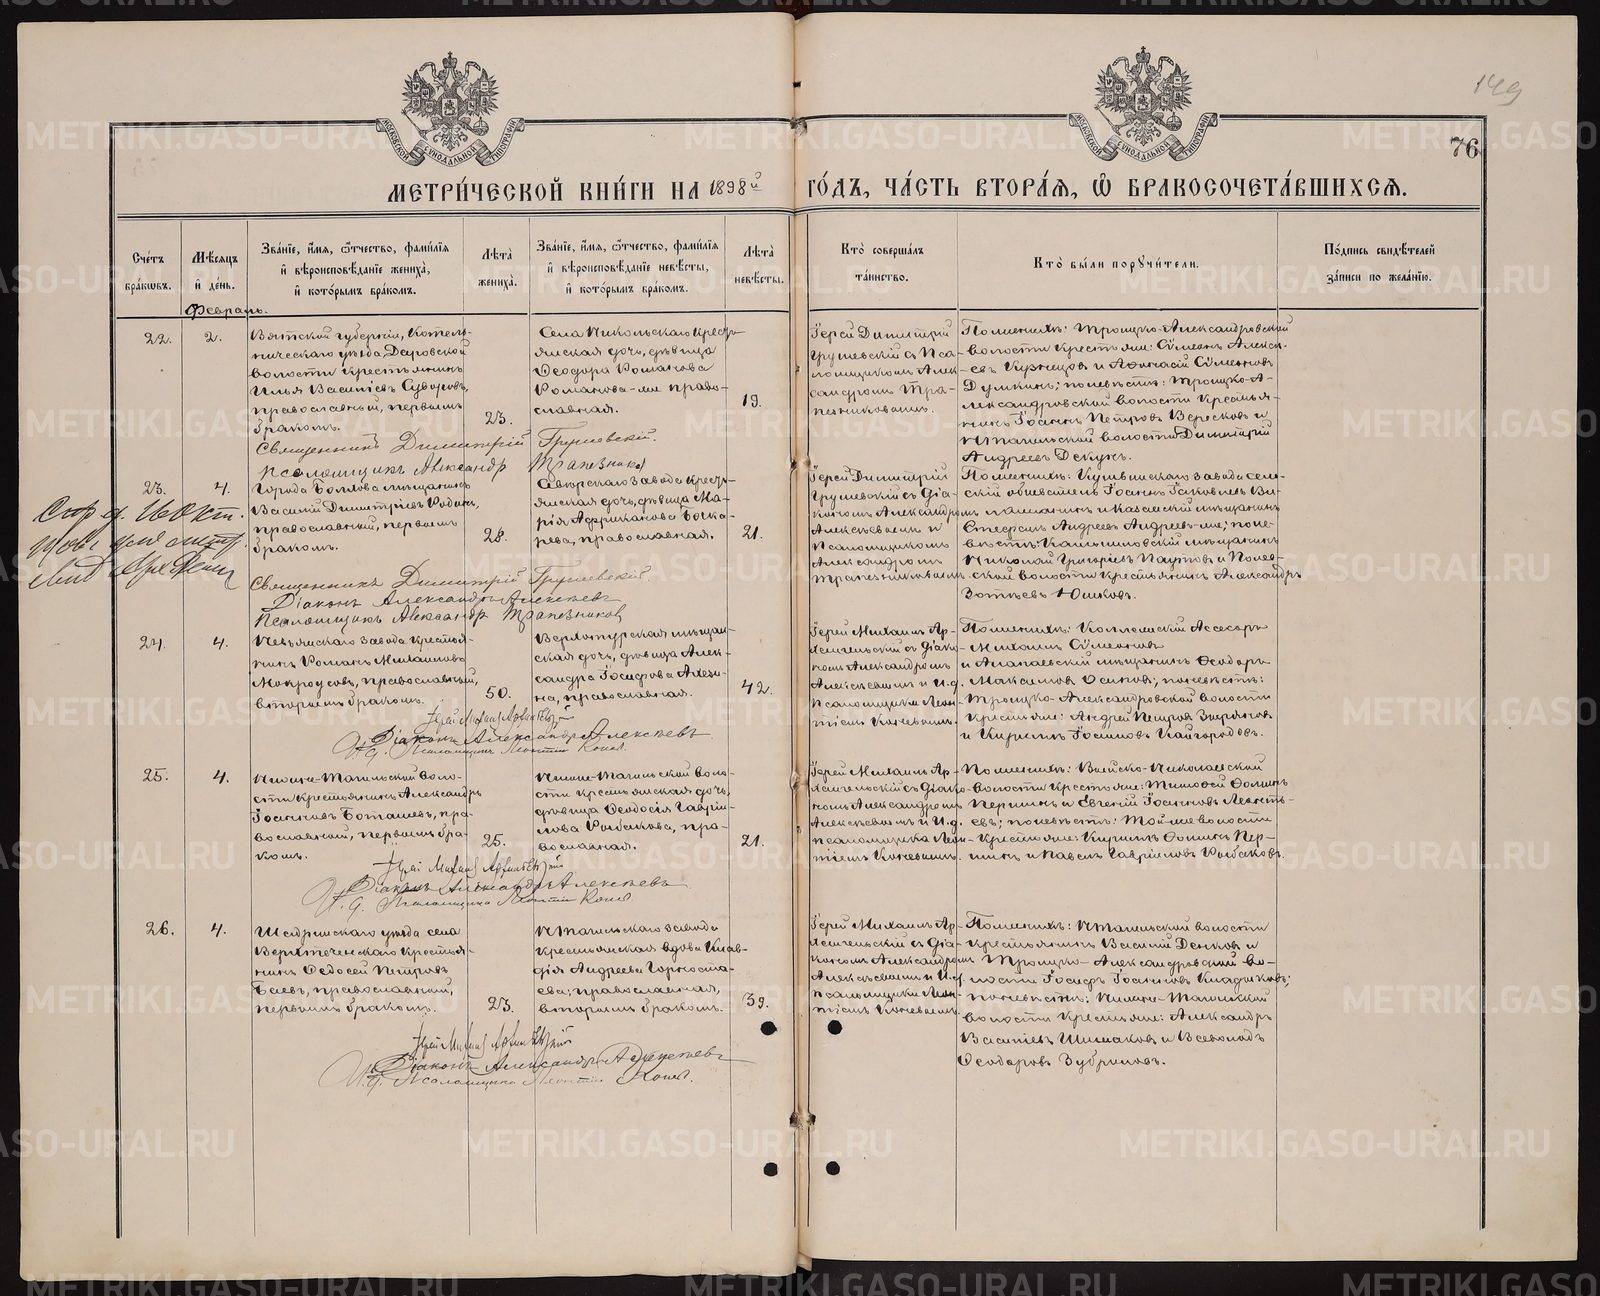 149
76
МОСКОВСКОЙ СѴНОДАЛЬНОЙ ТИПОГРАФІИ
МОСКОВСКОЙ СѴНОДАЛЬНОЙ ТИПОГРАФІИ
МЕТРИ́ЧЕСКОЙ КНИ́ГИ НА 1898й ГО́ДЪ, ЧА́СТЬ ВТОРА́Я, Ѡ БРАКОСОЧЕТА́ВШИХСЯ.
Сче́тъ бра́кѡвъ.
Мѣ́сяцъ и́ де́нь.
Зва́нїе, и́мя, ѻ́тчество, фами́лїя и́ вѣроисповѣ́данїе жениха̀, и́ кото́рымъ бра́комъ.
Лѣта̀ жениха̀.
Зва́нїе, и́мя, ѻ́тчество, фами́лїя и́ вѣроисповѣ́данїе невѣ́сты, и́ кото́рымъ бра́комъ.
Лѣта̀ невѣ́сты.
Кто̀ соверша́лъ та́инство.
Кто̀ бы́ли порꙋчи́тели.
По́дпись свидѣ́телей за́писи по жела́нїю.
Февраль.
22.
2.
Вятской губерніи, Котель-
ническаго уѣзда, Даровской
волости крестьянинъ
Илья Васильевъ Суворовъ,
православный, первымъ
бракомъ.
23.
Села Никольскаго кресть-
янская дочь, дѣвица
Ѳеодора Романова
Романова-же право-
славная.
19.
Іерей Димитрій
Грушевскій съ Пса-
ломщикомъ Алек-
сандромъ Тра-
пезниковымъ.
По женихѣ: Троицко-Александровской
волости крестьяне: Сѵмеонъ Алексѣ-
евъ Кузнецовъ и Аѳанасій Сѵмеоновъ
Думкинъ; по невѣстѣ: Троицко-А-
лександровской волости крестья-
нинъ Іоаннъ Петровъ Вересковъ и
Н-Тагильской волости Димитрій
Андреевъ Декунъ.
Священникъ Димитрій Грушевскій.
Псаломщикъ Александръ Трапезников
23.
4.
Города Болхова мѣщанинъ
Василій Димитріевъ Родинъ,
православный, первымъ
бракомъ.
28.
крестьянская дочь, дѣвица Ма-
рія Африканова Бочка-
рева, православная.
21.
Іерей Димитрій
Грушевскій съ Діа-
кономъ Александромъ
Алексѣевымъ и
Псаломщикомъ
Александромъ
Трапезниковымъ
По женихѣ: Кушвинскаго завода сель-
скій обыватель Іоаннъ Іаковлевъ
и Казанскій мѣщанинъ
Андреевъ Андреевъ-же; по не-
вѣстѣ: Камышловскій мѣщанинъ
Николай Григорьевъ Паутовъ и Полев-
ской волости крестьянинъ Александръ
Зотѣевъ Юшковъ.
Священникъ Димитрій Грушевскій
Діаконъ Александръ Алексѣевъ
Псаломщикъ Александр Трапезников
24.
4.
Невьянскаго завода крестья-
нинъ Романъ Михаиловъ
Мокроусовъ, православный,
вторымъ бракомъ.
50.
Верхотурская мѣщан-
ская дочь, дѣвица Алек-
сандра Іосифова
православная.
42.
Іерей Михаилъ Ар-
хангельскій съ Діако-
номъ Александромъ
Алексѣевымъ и И.д.
Псаломщика Леон-
тіемъ Коневымъ.
По женихѣ: Коллежскій Ассесоръ
Михаилъ Сѵмеоновъ
и Алапаевскій мѣщанинъ Ѳеодоръ
Максимовъ Осиповъ; по невѣстѣ:
Троицко-Александровской волости
крестьяне: Андрей Петровъ Зыряновъ
и Кириллъ Іоанновъ Кайгородовъ.
Іерей Михаил Архангельскій
Діаконъ Александръ Алексѣевъ.
И.д. Псаломщика Леонтій Конев.
25.
4.
Нижне-Тагильской воло-
сти крестьянинъ Александръ
Іоанновъ Боташевъ, пра-
вославный, первымъ бра-
комъ.
25.
Нижне-Тагильской воло-
сти крестьянская дочь,
дѣвица Ѳеодосія Гаврі-
лова Рыбакова, пра-
вославная.
21.
Іерей Михаилъ Ар-
хангельскій съ Діако-
номъ Александромъ
Алексѣевымъ и И.д.
псаломщика Леон-
тіемъ Коневымъ.
По женихѣ: Выйско-Николаевской
волости крестьяне: Тимофей Ѳоминъ
Першинъ и Евгеній Іоанновъ Леонть-
евъ; по невѣстѣ: Той-же волости
крестьяне: Кириллъ Ѳоминъ Пер-
шинъ и Павелъ Гавріиловъ Рыбаковъ.
Іерей Михаил Архангельскій
Діаконъ Александръ Алексѣевъ
И.д. Псаломщика Леонтій Конев.
26.
4.
Шадринскаго уѣзда села
Верхтеченскаго крестья-
нинъ Ѳедосей Петровъ
Баевъ, православный,
первымъ бракомъ.
23.
Н-Тагильскаго завода
крестьянская вдова Клав-
дія Андреева Горноста-
ева; православная,
вторымъ бракомъ.
39.
Іерей Михаилъ Ар-
хангельскій съ Діа-
кономъ Александромъ
Алексѣевымъ и И.д.
псаломщика Леон-
тіемъ Коневымъ.
По женихѣ: Н-Тагильской волости
крестьянинъ Василій Денковъ и
Троицко-Александровской во-
лости Іосифъ Іоанновъ Кладиковъ;
по невѣстѣ: Нижне-Тагильской
волости крестьяне: Александръ
Васильевъ Шишаковъ и Всеволодъ
Ѳеодоровъ Зубриловъ.
Іерей Михаил Архангельскій
Діаконъ Александръ Алексѣевъ
И.д. Псаломщика Леонтій Конев.
METRIKI.GASO-URAL.RU